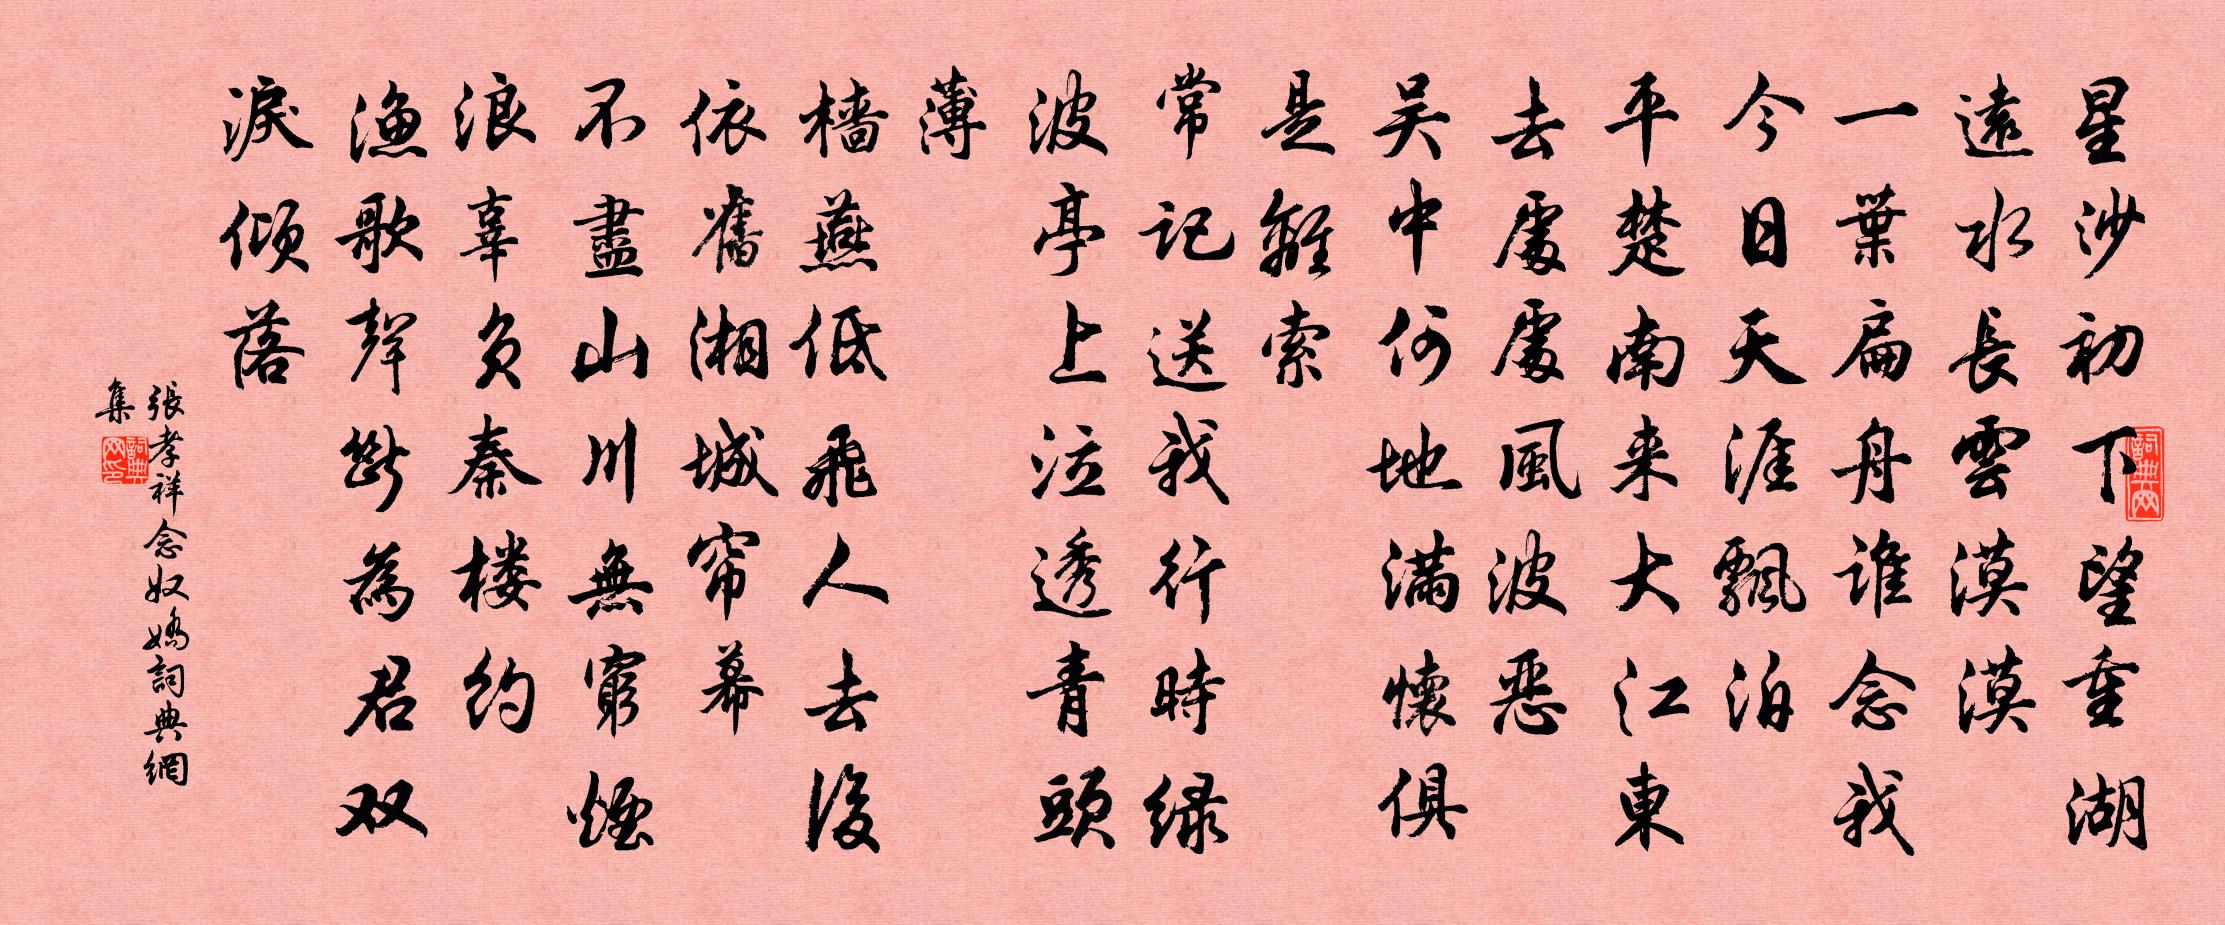 星沙初下望重湖
遠水長雲漠漠
一葉扁舟誰念我
今日天涯飄泊
平楚南来大江東
去處處風波惡
吴中何地滿懷俱
是離索
常記送我行時綠
波亭上泣透青頭
薄
檣燕低飛人去後
依舊湘城帘幕
不盡山川無窮煙
浪辜負秦楼約
漁歌聲斷為君双
淚傾落
張孝祥念奴嬌詞典網
集
詞典网
詞典网印